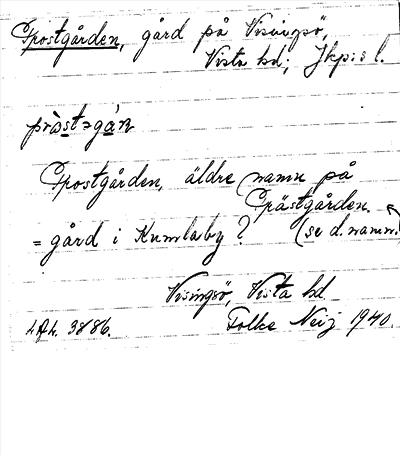 Prostgården, gård på Visingsö,
Vista hd; Jkpis l.
Prostgården, äldre namn på
Prästgården.
= gård i Kumlaby? (se d. namn.)
Visingsö, Vista hd
Folke Neij 1940.